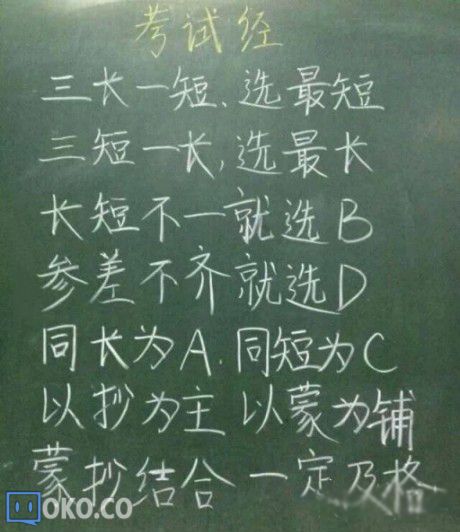 考试经
三长一短、选最短
三短一长,选最长
长短不一就选B
参差不齐就选D
同长为A.同短为C
以抄为主 以蒙为铺
蒙抄结合 一定及格
OKO.CO